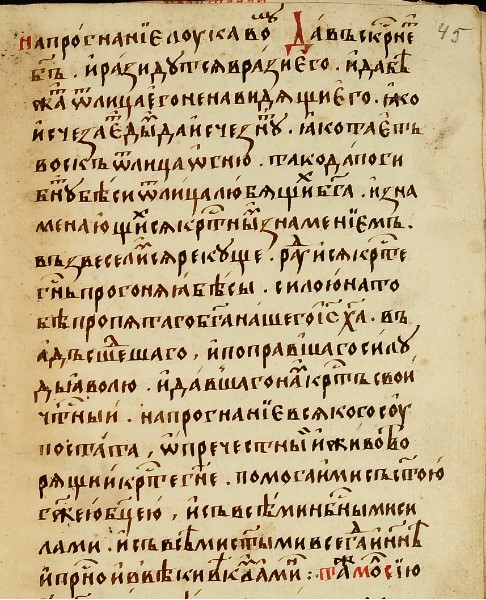 45
напрогнанїе лоукаво да въскр҃нет
б҃ъ · и разидутся врази его · и да бѣ
жат ѿ лица его ненавидящиі его · ꙗко
исчезает дым да исчезнꙋ · ꙗко таетъ
воскъ ѿ лица ѡгню · тако да поги
бнꙋ бѣси ѿ лица любящих бг҃а · и зна
менающихся кр҃тным знаменїемъ ·
възвеселимся рекуще · радꙋися кр҃те
гн҃ь прогоняꙗ бѣсы · силою на то
бѣ пропятаго бг҃а нашего іс҃ х҃а · въ
адъ сшедшаго , и поправшаго силу
дыаволю · и давшаго нам кр҃тъ свои
чтⷭ҇ный · на прогнанїе всякого соу
постата , ѿ пречестныи и животво
рящии кр҃те гн҃ь · помогаи ми съ ст҃ою
гж҃ею бц҃ею , и съ всѣми нбⷭ҇ными си
лами · и съ всѣми ст҃ыми всегда и нн҃ѣ
и прⷭ҇но и в вѣки вѣком аминь :